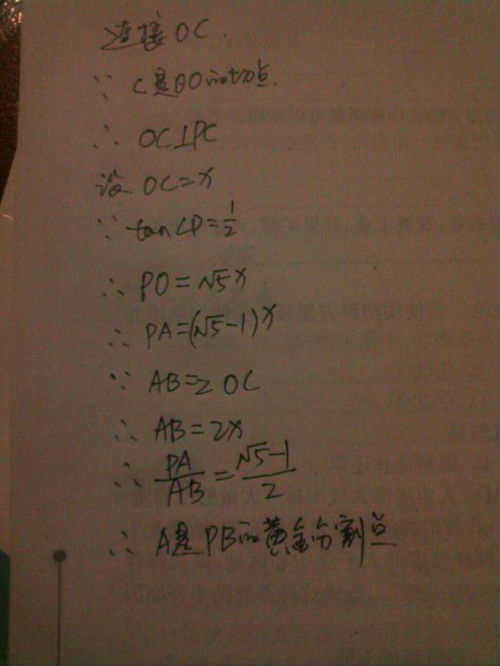 连接OC.
∵ C是⊙O的切点.
∴ OC⊥PC
设 OC=x
∵ tan∠P=1/2
∴ PO=√5x
∴ PA=(√5-1)x
∵ AB=2OC
∴ AB=2x
∴ PA/AB=(√5-1)/2
∴ A是PB的黄金分割点